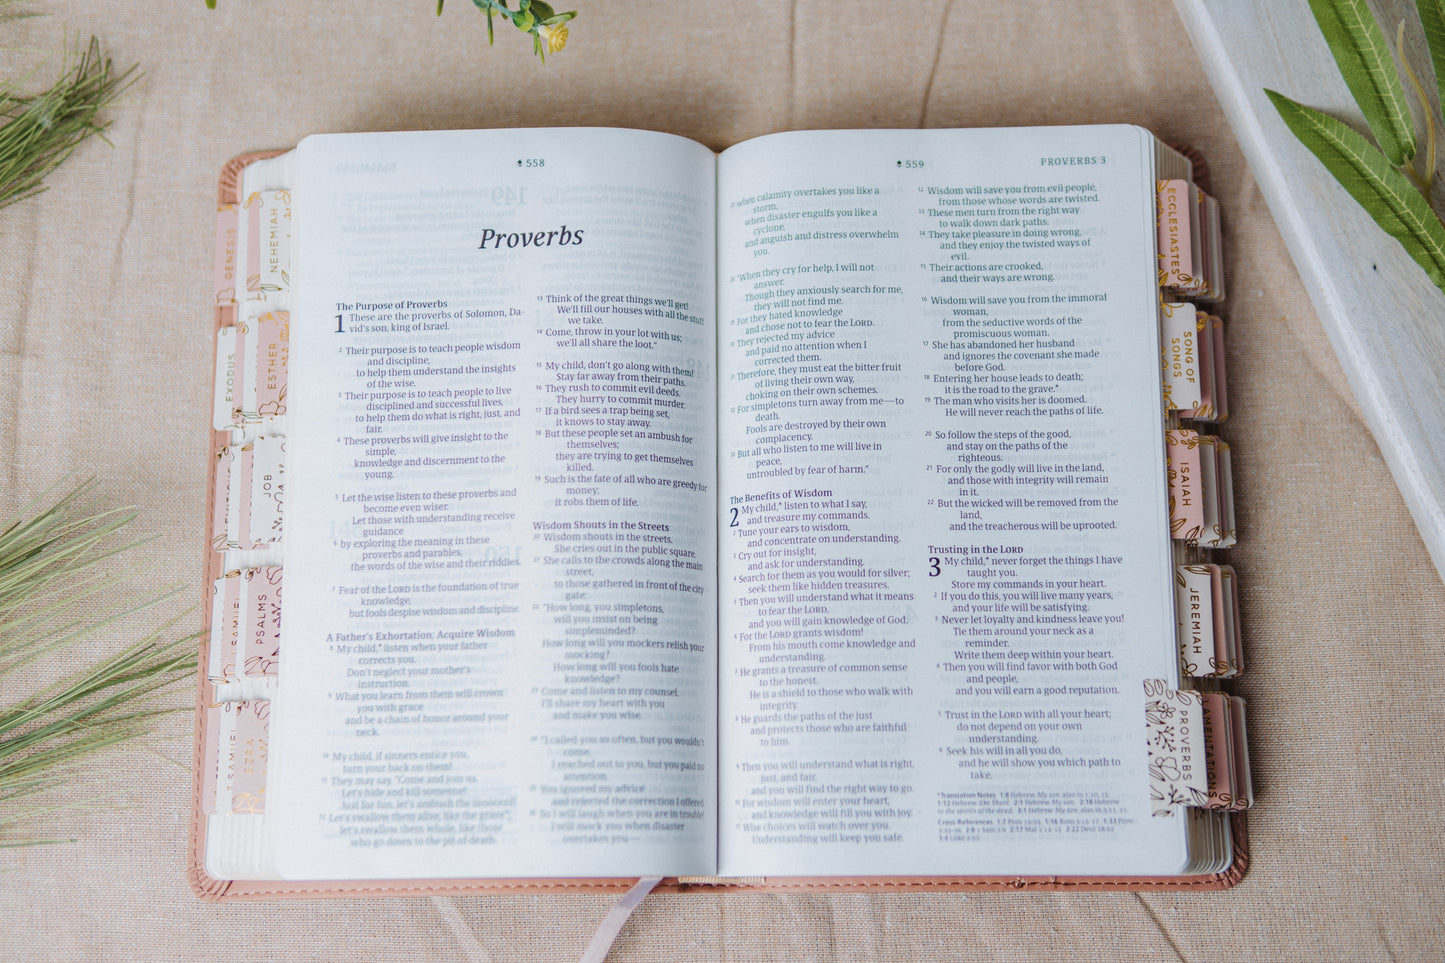 558
Proverbs
The Purpose of Proverbs
1 These are the proverbs of Solomon, Da-
vid's son, king of Israel.
2 Their purpose is to teach people wisdom
and discipline,
to help them understand the insights
of the wise.
3 Their purpose is to teach people to live
disciplined and successful lives,
to help them do what is right, just, and
fair.
4 These proverbs will give insight to the
simple,
knowledge and discernment to the
young.
5 Let the wise listen to these proverbs and
become even wiser.
Let those with understanding receive
guidance
6 by exploring the meaning in these
proverbs and parables,
the words of the wise and their riddles.
7 Fear of the LORD is the foundation of true
knowledge,
but fools despise wisdom and discipline.
A Father's Exhortation: Acquire Wisdom
8 My child,* listen when your father
corrects you.
Don't neglect your mother's
instruction.
9 What you learn from them will crown
you with grace
and be a chain of honor around your
neck.
10 My child, if sinners entice you,
turn your back on them!
11 They may say, "Come and join us.
Let's hide and kill someone!
Just for fun, let's ambush the innocent!
12 Let's swallow them alive, like the grave*;
let's swallow them whole, like those
who go down to the pit of death.
13 Think of the great things we'll get!
We'll fill our houses with all the stuff
we take.
14 Come, throw in your lot with us;
we'll all share the loot."
15 My child, don't go along with them!
Stay far away from their paths.
16 They rush to commit evil deeds.
They hurry to commit murder.
17 If a bird sees a trap being set,
it knows to stay away.
18 But these people set an ambush for
themselves;
they are trying to get themselves
killed.
19 Such is the fate of all who are greedy for
money;
it robs them of life.
Wisdom Shouts in the Streets
20 Wisdom shouts in the streets.
She cries out in the public square.
21 She calls to the crowds along the main
street,
to those gathered in front of the city
gate:
22 "How long, you simpletons,
will you insist on being
simpleminded?
How long will you mockers relish your
mocking?
How long will you fools hate
knowledge?
23 Come and listen to my counsel.
I'll share my heart with you
and make you wise.
24 "I called you so often, but you wouldn't
come.
I reached out to you, but you paid no
attention.
25 You ignored my advice
and rejected the correction I offered.
26 So I will laugh when you are in trouble!
I will mock you when disaster
overtakes you—
559
PROVERBS 3
27 when calamity overtakes you like a
storm,
when disaster engulfs you like a
cyclone,
and anguish and distress overwhelm
you.
28 "When they cry for help, I will not
answer.
Though they anxiously search for me,
they will not find me.
29 For they hated knowledge
and chose not to fear the LORD.
30 They rejected my advice
and paid no attention when I
corrected them.
31 Therefore, they must eat the bitter fruit
of living their own way,
choking on their own schemes.
32 For simpletons turn away from me—to
death.
Fools are destroyed by their own
complacency.
33 But all who listen to me will live in
peace,
untroubled by fear of harm."
The Benefits of Wisdom
2 My child,* listen to what I say,
and treasure my commands.
2 Tune your ears to wisdom,
and concentrate on understanding.
3 Cry out for insight,
and ask for understanding.
4 Search for them as you would for silver;
seek them like hidden treasures.
5 Then you will understand what it means
to fear the LORD,
and you will gain knowledge of God.
6 For the LORD grants wisdom!
From his mouth come knowledge and
understanding.
7 He grants a treasure of common sense
to the honest.
He is a shield to those who walk with
integrity.
8 He guards the paths of the just
and protects those who are faithful
to him.
9 Then you will understand what is right,
just, and fair,
and you will find the right way to go.
10 For wisdom will enter your heart,
and knowledge will fill you with joy.
11 Wise choices will watch over you.
Understanding will keep you safe.
12 Wisdom will save you from evil people,
from those whose words are twisted.
13 These men turn from the right way
to walk down dark paths.
14 They take pleasure in doing wrong,
and they enjoy the twisted ways of
evil.
15 Their actions are crooked,
and their ways are wrong.
16 Wisdom will save you from the immoral
woman,
from the seductive words of the
promiscuous woman.
17 She has abandoned her husband
and ignores the covenant she made
before God.
18 Entering her house leads to death;
it is the road to the grave.*
19 The man who visits her is doomed.
He will never reach the paths of life.
20 So follow the steps of the good,
and stay on the paths of the
righteous.
21 For only the godly will live in the land,
and those with integrity will remain
in it.
22 But the wicked will be removed from the
land,
and the treacherous will be uprooted.
Trusting in the LORD
3 My child,* never forget the things I have
taught you.
Store my commands in your heart.
2 If you do this, you will live many years,
and your life will be satisfying.
3 Never let loyalty and kindness leave you!
Tie them around your neck as a
reminder.
Write them deep within your heart.
4 Then you will find favor with both God
and people,
and you will earn a good reputation.
5 Trust in the LORD with all your heart;
do not depend on your own
understanding.
6 Seek his will in all you do,
and he will show you which path to
take.
*Translation Notes 1:8 Hebrew My son, also in 1:10, 15.
1:12 Hebrew like Sheol. 2:1 Hebrew My son. 2:18 Hebrew
to the spirits of the dead. 3:1 Hebrew My son, also in 3:11, 21.
Cross-References
GENESIS
NEHEMIAH
EXODUS
ESTHER
JOB
1 SAMUEL
PSALMS
2 SAMUEL
EZRA
ECCLESIASTES
SONG OF
SONGS
ISAIAH
JEREMIAH
PROVERBS
LAMENTATIONS